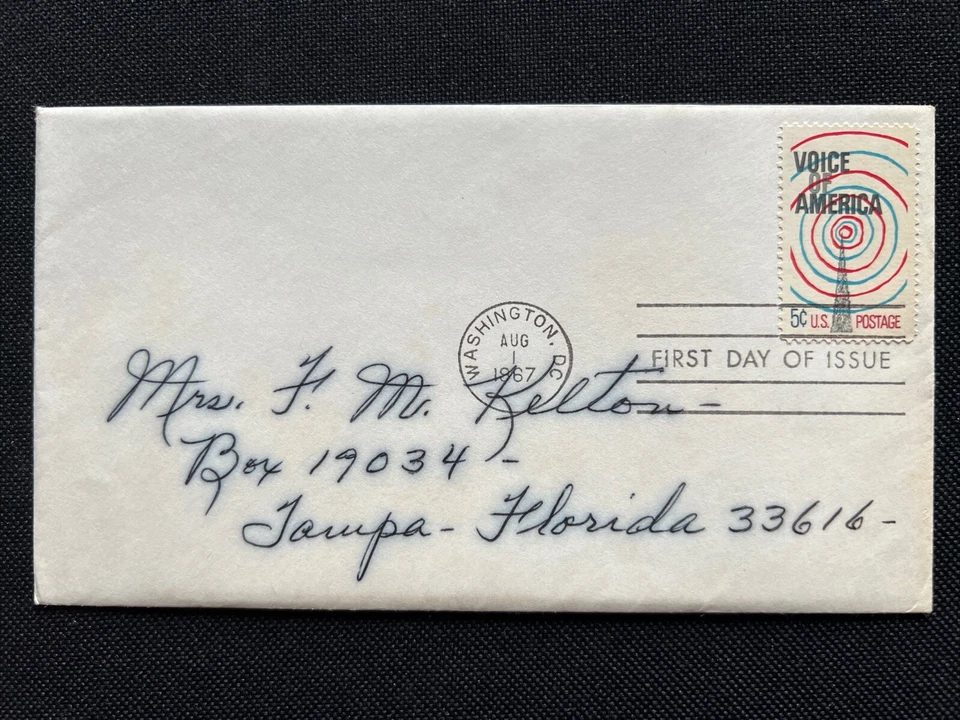 VOICE
OF
AMERICA
5¢ U.S. POSTAGE
WASHINGTON, DC
AUG
1
1967
FIRST DAY OF ISSUE
Mrs. F. M. Kelton -
Box 19034 -
Tampa - Florida 33616 -